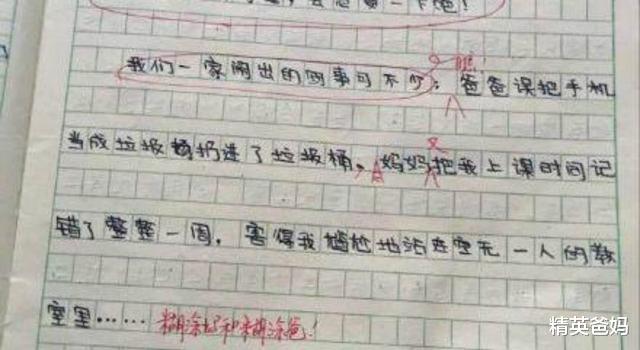 我们一家闹出的囧事可不少，爸爸误把手机
瞧！
当成垃圾扔进了垃圾桶，妈妈把我上课时间记
又
错了整整一周，害得我尴尬地站在空无一人的教
室里……糊涂妈和糊涂爸！
精英爸妈